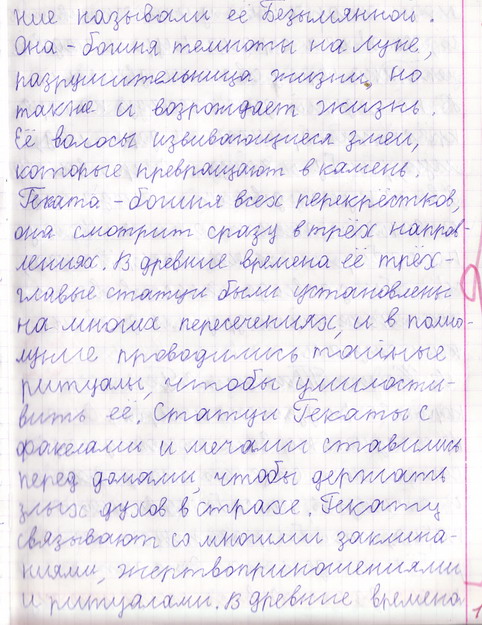 ние называли её Безымянной.
Она - богиня темноты на Луне,
разрушительница жизни, но
также и возрождает жизнь.
Её волосы извивающиеся змеи,
которые превращают в камень.
Геката - богиня всех перекрёстков,
она смотрит сразу в трёх направ-
лениях. В древние времена её трёх-
главые статуи были установлены
на многих пересечениях, и в полно-
луние проводились тайные
ритуалы, чтобы умилости-
вить её. Статуи Гекаты с
факелами и мечами ставились
перед домами, чтобы держать
злых духов в страхе. Гекату
связывают со многими заклина-
ниями, жертвоприношениями
и ритуалами. В древние времена
1